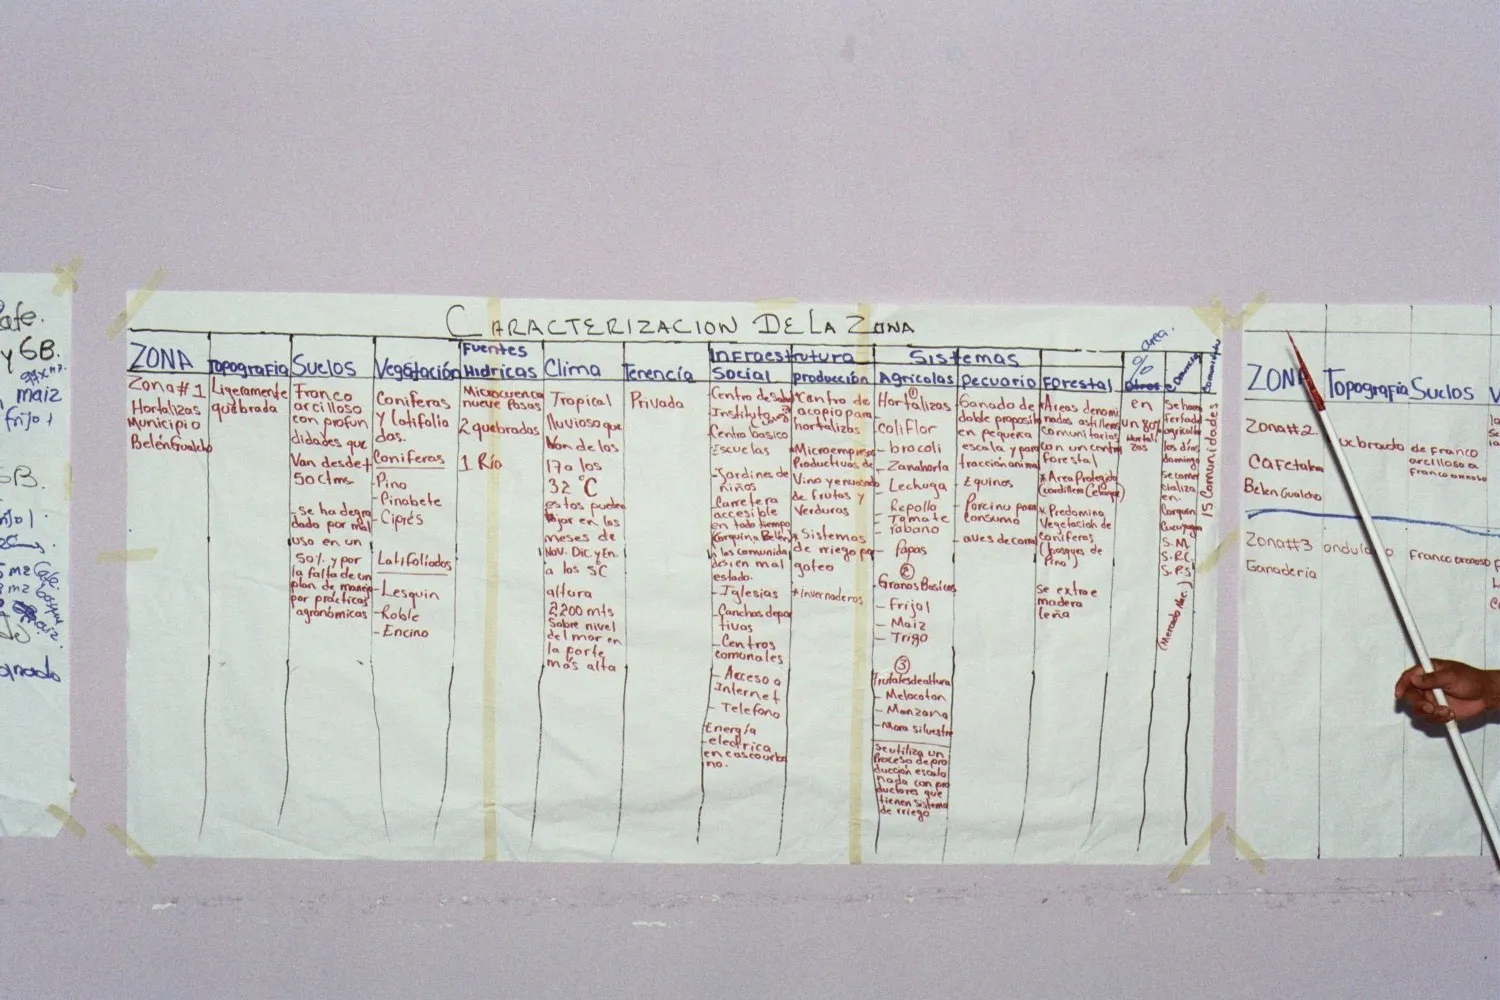 afe.
y GB.
maiz
frijol
SB.
CARACTERIZACION DE LA ZONA
ZONA
Topografia
Suelos
Vegetación
Fuentes
Hidricas
Clima
Tenencia
Infraestrutura
Social
producción
Sistemas
Agricolas
pecuario
Forestal
% area.
Comunidades
Zona #1
Hortalizas
Municipio
Belén Gualcho
Ligeramente
quebrada
Franco
arcilloso
con profun
didades que
Van desde +
50 ctms.
- se ha degra
dado por mal
uso en un
50% y por
la falta de un
plan de manejo
por prácticas
agronómicas
Coniferas
y latifolia
das.
Coniferas
- Pino
- Pinabete
- Ciprés
Latifoliados
- Lesquin
- Roble
- Encino
Microcuenca
nueve Posas
2 quebradas
1 Río
Tropical
lluvioso que
Van de los
17 a los
32 °C
estos pueden
bajar en los
meses de
Nov. Dic. y En.
a los 5C
altura
2,200 mts
Sobre nivel
del mar en
la parte
más alta
Privada
Centro de salud
Centro basico
Escuelas
- Jardines de
niños
- Carretera
accesible
en todo tiempo
Corquin a Belén
a las comunida
des en mal
estado.
- Iglesias
- Canchas depor
tivas
- Centros
comunales
- Acceso a
Internet
- Telefono
Energía
electrica
en casco urba
no.
Centro de
acopio para
hortalizas
* Microempresa
Productivas de
Vino y envasado
de frutas y
Verduras
* Sistemas
de riego por
goteo
* Invernaderos
①
Hortalizas
coliflor
- brocoli
- Zanahoria
- Lechuga
- Repollo
- Tomate
- rabano
- Papas
②
Granos Basicos
- Frijol
- Maiz
- Trigo
③
Frutales de altura
- Melocoton
- Manzana
- Mora silvestre
Se utiliza un
Proceso de pro
ducción escalo
nada con pro
ductores que
tienen sistema
de riego
Ganado de
doble proposito
en pequeña
escala y para
tracción animal
- Equinos
- Porcino para
consumo
- aves de corral
Areas denomi
nadas astilleros
comunitarios
con un contrato
forestal
* Area Protegida
(cordillera Celaque)
* Predomina
Vegetacion de
coniferas
(bosques de
Pino)
se extrae
madera
leña
en
un 80%
Hortali
zas
se han
feriado
agricola
los días
domingo
se comer
cializa
en.
Corquin
Cucuyagua
S.M.
S.R.C.
S.P.S.
(Mercado Nac.)
15 Comunidades
ZONA
Topografia
Suelos
V
Zona #2
Cafetalera
Belén Gualcho
quebrada
de Franco
arcilloso a
Franco arenoso
Zona #3
Ganaderia
ondulado
Franco arenoso